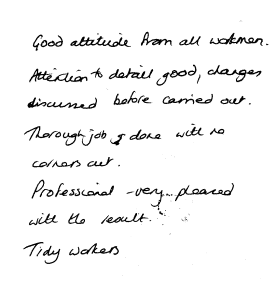 Good attitude from all workmen.
Attention to detail good, changes
discussed before carried out.
Thorough job & done with no
corners cut.
Professional - very pleased
with the result.
Tidy workers